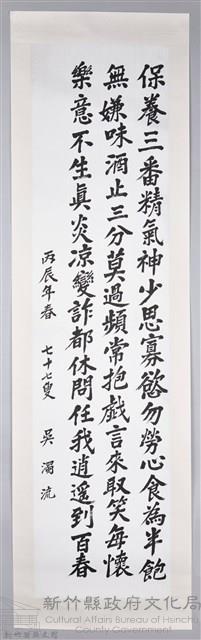 保養三番精氣神少思寡慾勿勞心食為半飽
無嫌味酒止三分莫過頻常抱戲言來取笑每懷
樂意不生真炎凉變詐都休問任我逍遥到百春
丙辰年春 七十七叟 吳濁流
新竹縣政府文化局
Cultural Affairs Bureau of Hsinchu
County Government